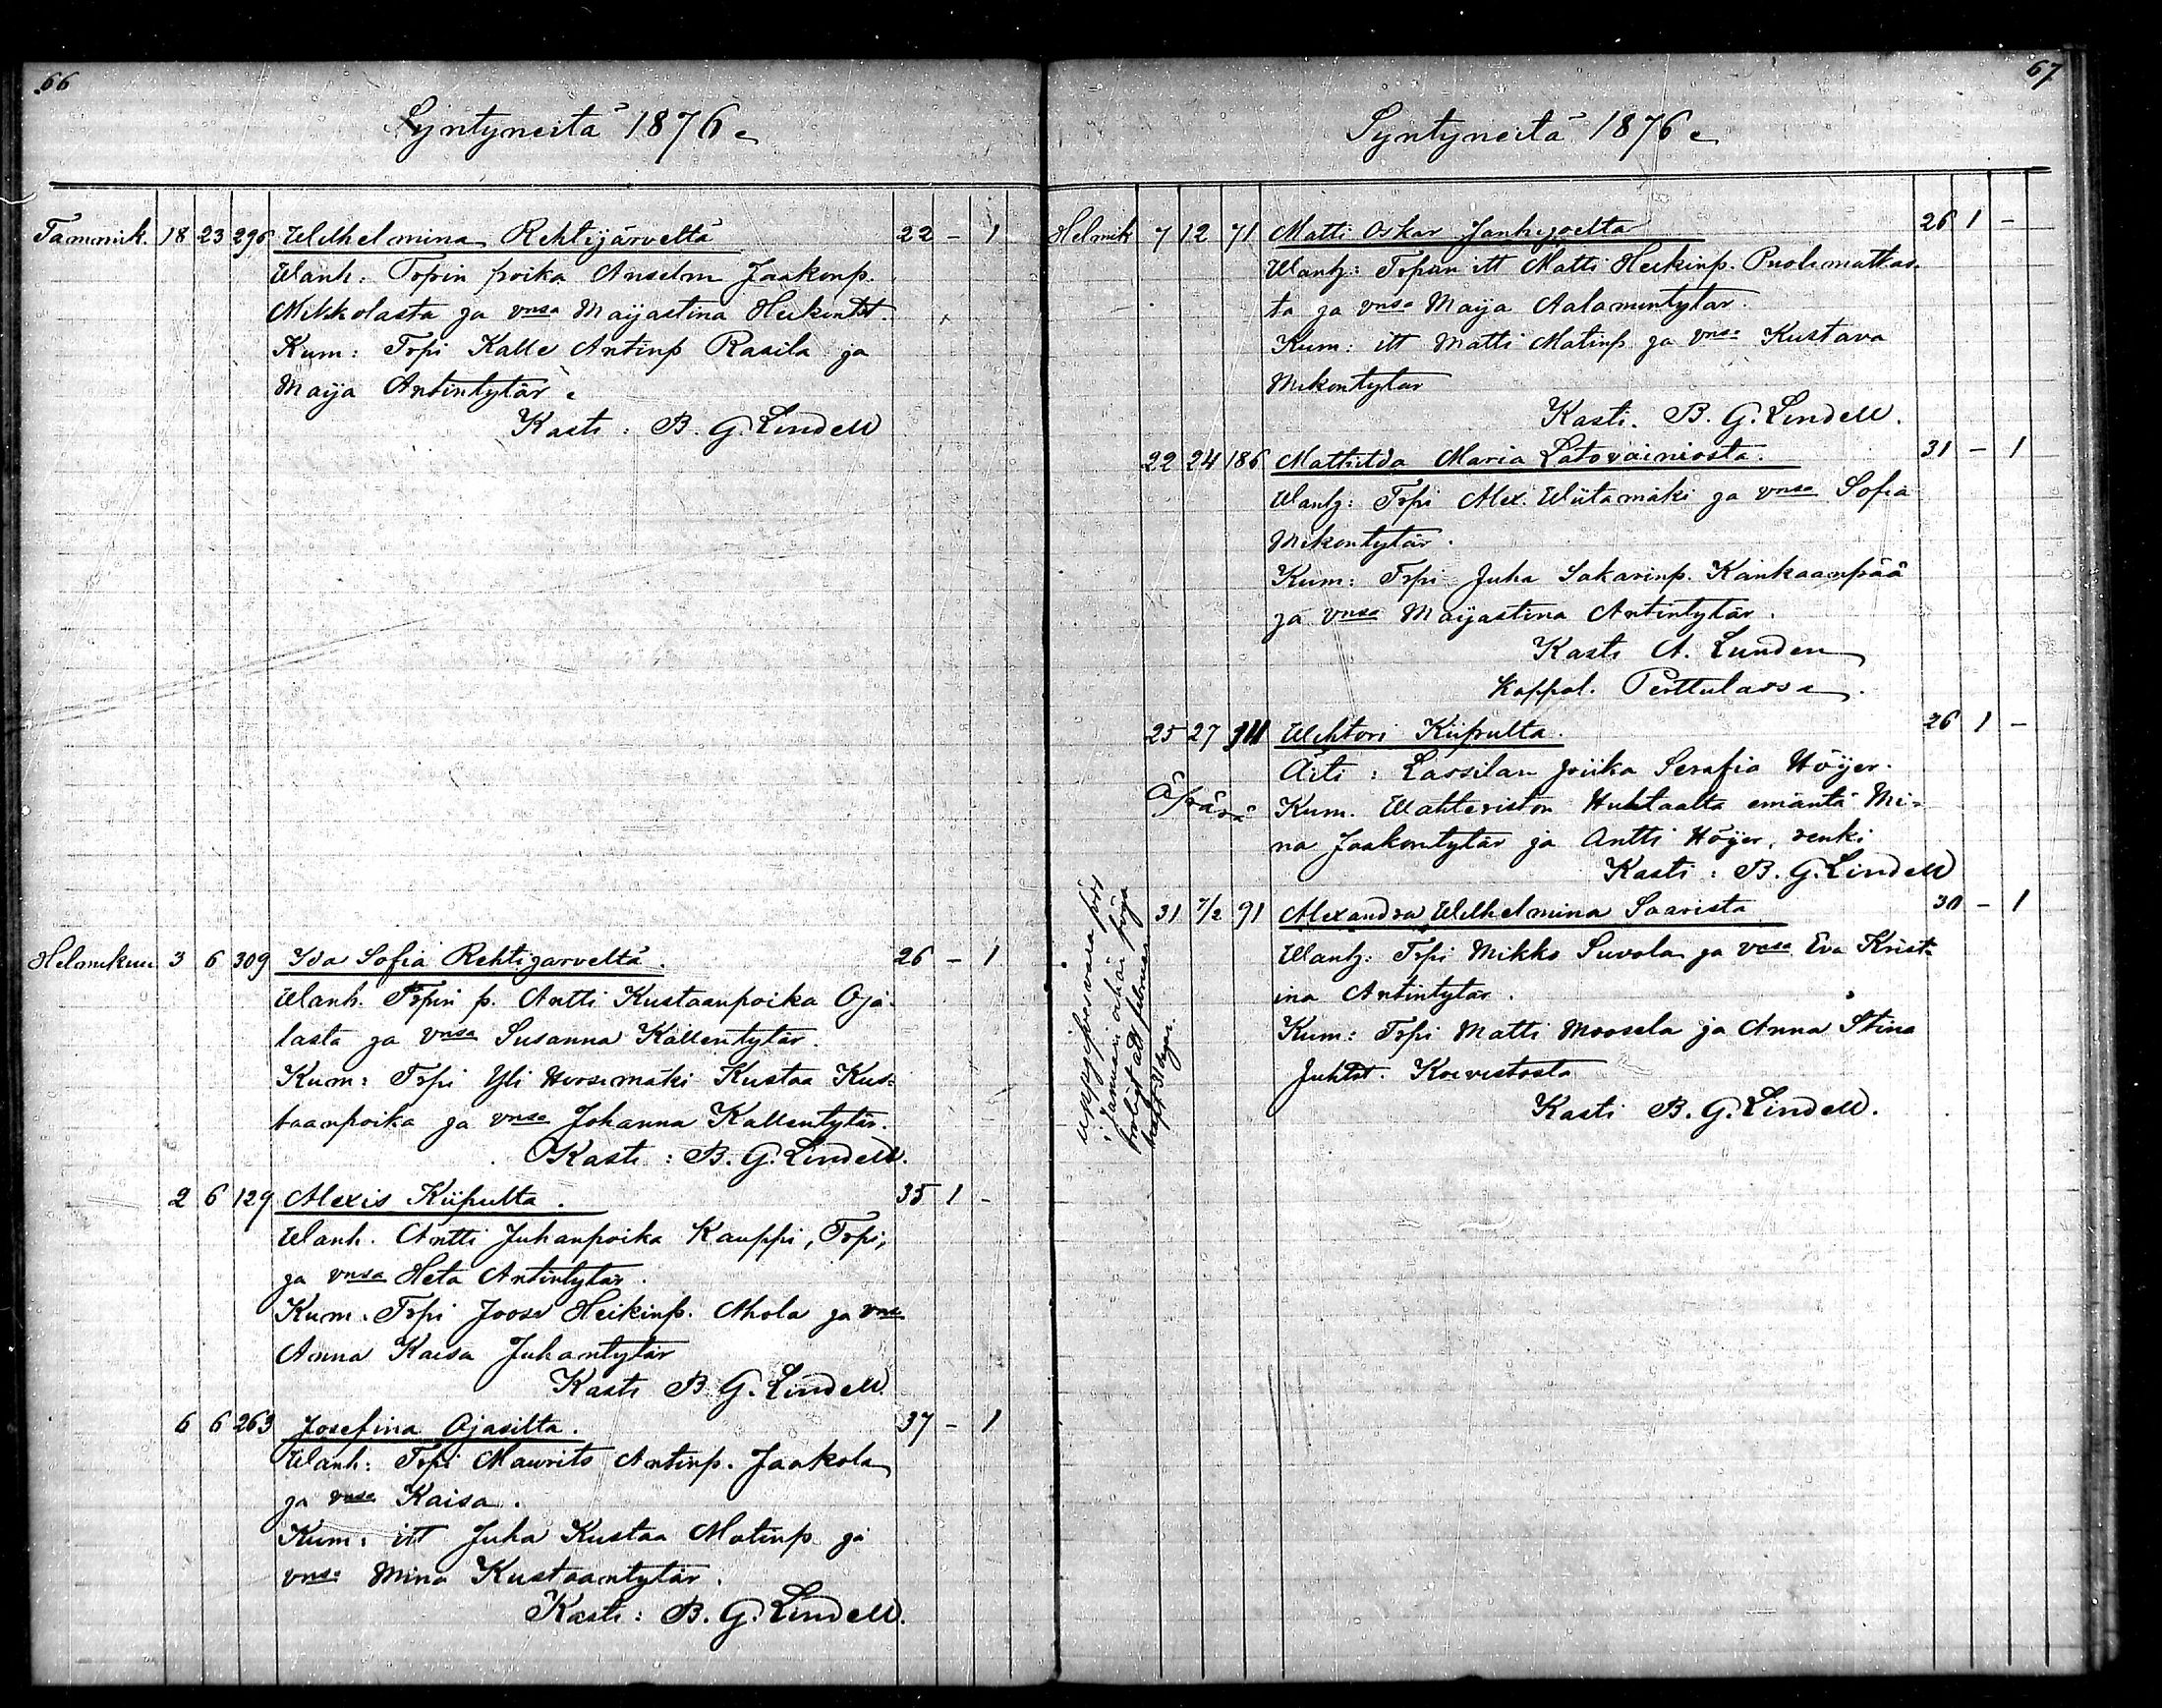 66
Syntyneitä 1876.
Tammik. 18 23 296 Wilhelmina Rehtijärveltä 22 - 1
Wanh: Torpin poika Anselm Jaakonp.
Mikkolasta ja vnsa Maijastina Heikintt.
Kum: Trpi Kalle Antinp Rasila ja
Maija Antintytär.
Kasti: B. G. Lindell
Helmikuu 3 6 309 Ida Sofia Rehtijärveltä. 26 - 1
Wanh. Torpin p. Antti Kustaanpoika Oja-
lasta ja vnsa Susanna Kallentytär.
Kum: Trpi Yli Hursimäki Kustaa Kus-
taanpoika ja vnsa Johanna Kallentytär.
Kasti: B. G. Lindell.
2 6 129 Alexis Kiipulta. 35 1 -
Wanh. Antti Juhanpoika Kauppi, Trpi,
ja vnsa Heta Antintytär.
Kum. Trpi Joose Heikinp. Ahola ja vnsa
Anna Kaisa Juhantytär
Kasti B. G. Lindell
6 6 263 Josefina Ojasilta. 37 - 1
Wanh: Trpi Maurits Antinp. Jaakola
ja vnsa Kaisa.
Kum: itt Juha Kustaa Matinp ja
vnsa Mina Kustaantytär.
Kasti: B. G. Lindell.
67
Syntyneitä 1876
Helmik 7 12 71 Matti Oskar Janhijoelta 26 1 -
Wanh: Torpan itt Matti Heikinp. Puolimattas-
ta ja vnsa Maija Aatamintytär.
Kum: itt Matti Matinp ja vnsa Kustava
Mikontytär
Kasti. B. G. Lindell.
22 24 186 Mathilda Maria Latovainiosta. 31 - 1
Wanh: Trpi Alex. Wiitamäki ja vnsa Sofia
Mikontytär.
Kum: Trpi Juha Sakarinp. Kankaanpää
ja vnsa Maijastina Antintytär.
Kasti A. Lunden
Kappal. Perttulassa.
25 27 Wihtori Kiipulta. 26 1 -
Äiti: Lassilan piika Serafia Höijer.
Äpärä Kum. Wahteriston Huhtaalta emäntä Mi-
na Jaakontytär ja Antti Höijer, renki
Kasti: B. G. Lindell
31 7/2 91 Alexandra Wilhelmina Saarista 30 - 1
Wanh: Trpi Mikko Suvola ja vnsa Eva Krist-
ina Antintytär.
Kum: Trpi Matti Moosela ja Anna Stina
Juhtt. Koivistosta
Kasti B. G. Lindell.
uppgifves vara född
i Januari och här
att februari
haft 31 dagar.